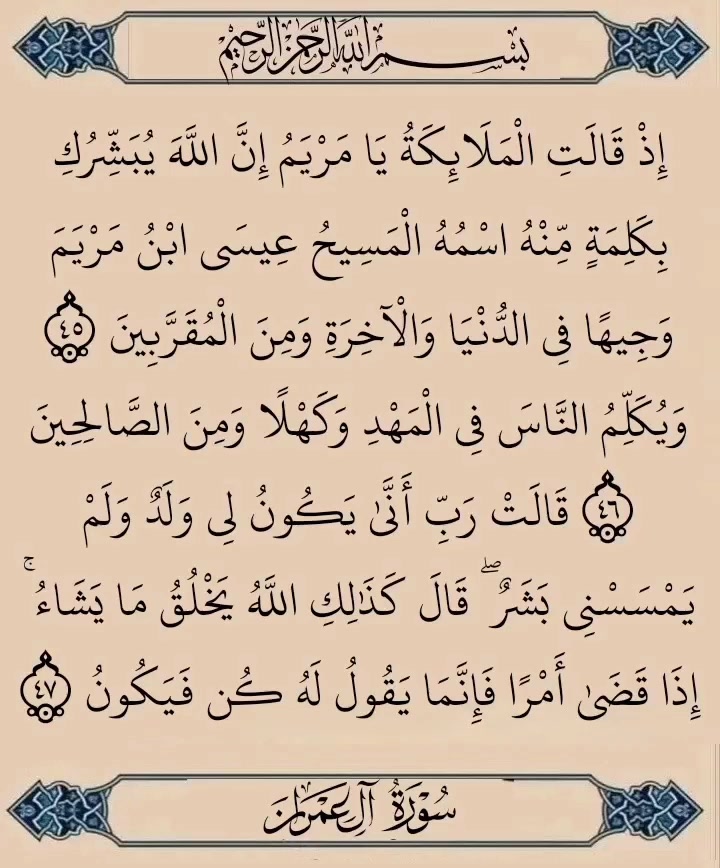 بسم الله الرحمن الرحيم
إِذْ قَالَتِ الْمَلَائِكَةُ يَا مَرْيَمُ إِنَّ اللَّهَ يُبَشِّرُكِ
بِكَلِمَةٍ مِّنْهُ اسْمُهُ الْمَسِيحُ عِيسَى ابْنُ مَرْيَمَ
وَجِيهًا فِي الدُّنْيَا وَالْآخِرَةِ وَمِنَ الْمُقَرَّبِينَ ٤٥
وَيُكَلِّمُ النَّاسَ فِي الْمَهْدِ وَكَهْلًا وَمِنَ الصَّالِحِينَ
٤٦ قَالَتْ رَبِّ أَنَّىٰ يَكُونُ لِي وَلَدٌ وَلَمْ
يَمْسَسْنِي بَشَرٌ ۖ قَالَ كَذَٰلِكِ اللَّهُ يَخْلُقُ مَا يَشَاءُ ۚ
إِذَا قَضَىٰ أَمْرًا فَإِنَّمَا يَقُولُ لَهُ كُن فَيَكُونُ ٤٧
سُورَةُ آلِ عِمْرَانَ